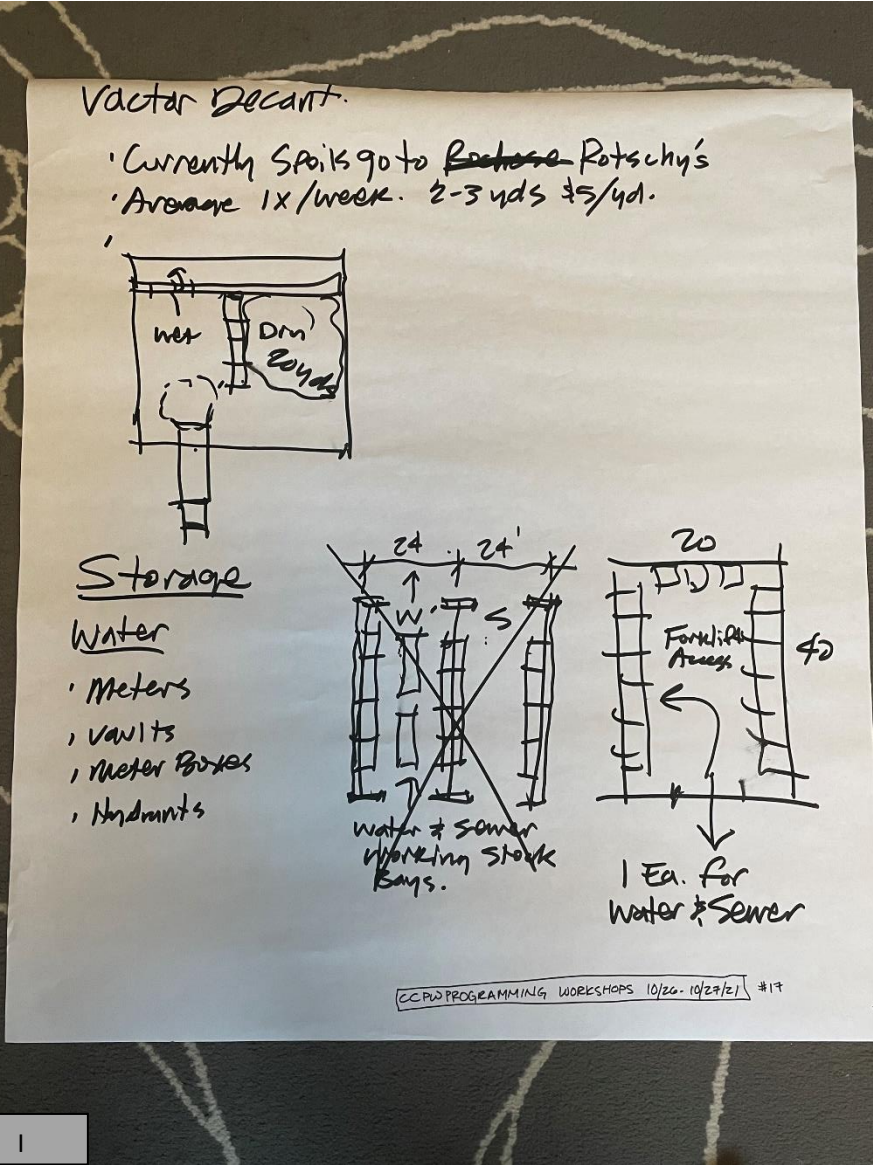 Vactor Decant.
· Currently Spoils go to Rotschy's
· Average 1x/week. 2-3 yds $5/yd.
wet
Dry
20yds
Storage
Water
· Meters
· Vaults
· Meter Boxes
· Hydrants
24 24'
W S
Water & Sewer
Working Stock
Bays.
20
Forklift
Access
40
1 Ea. for
Water & Sewer
CCPW PROGRAMMING WORKSHOPS 10/26-10/27/21 #17
1